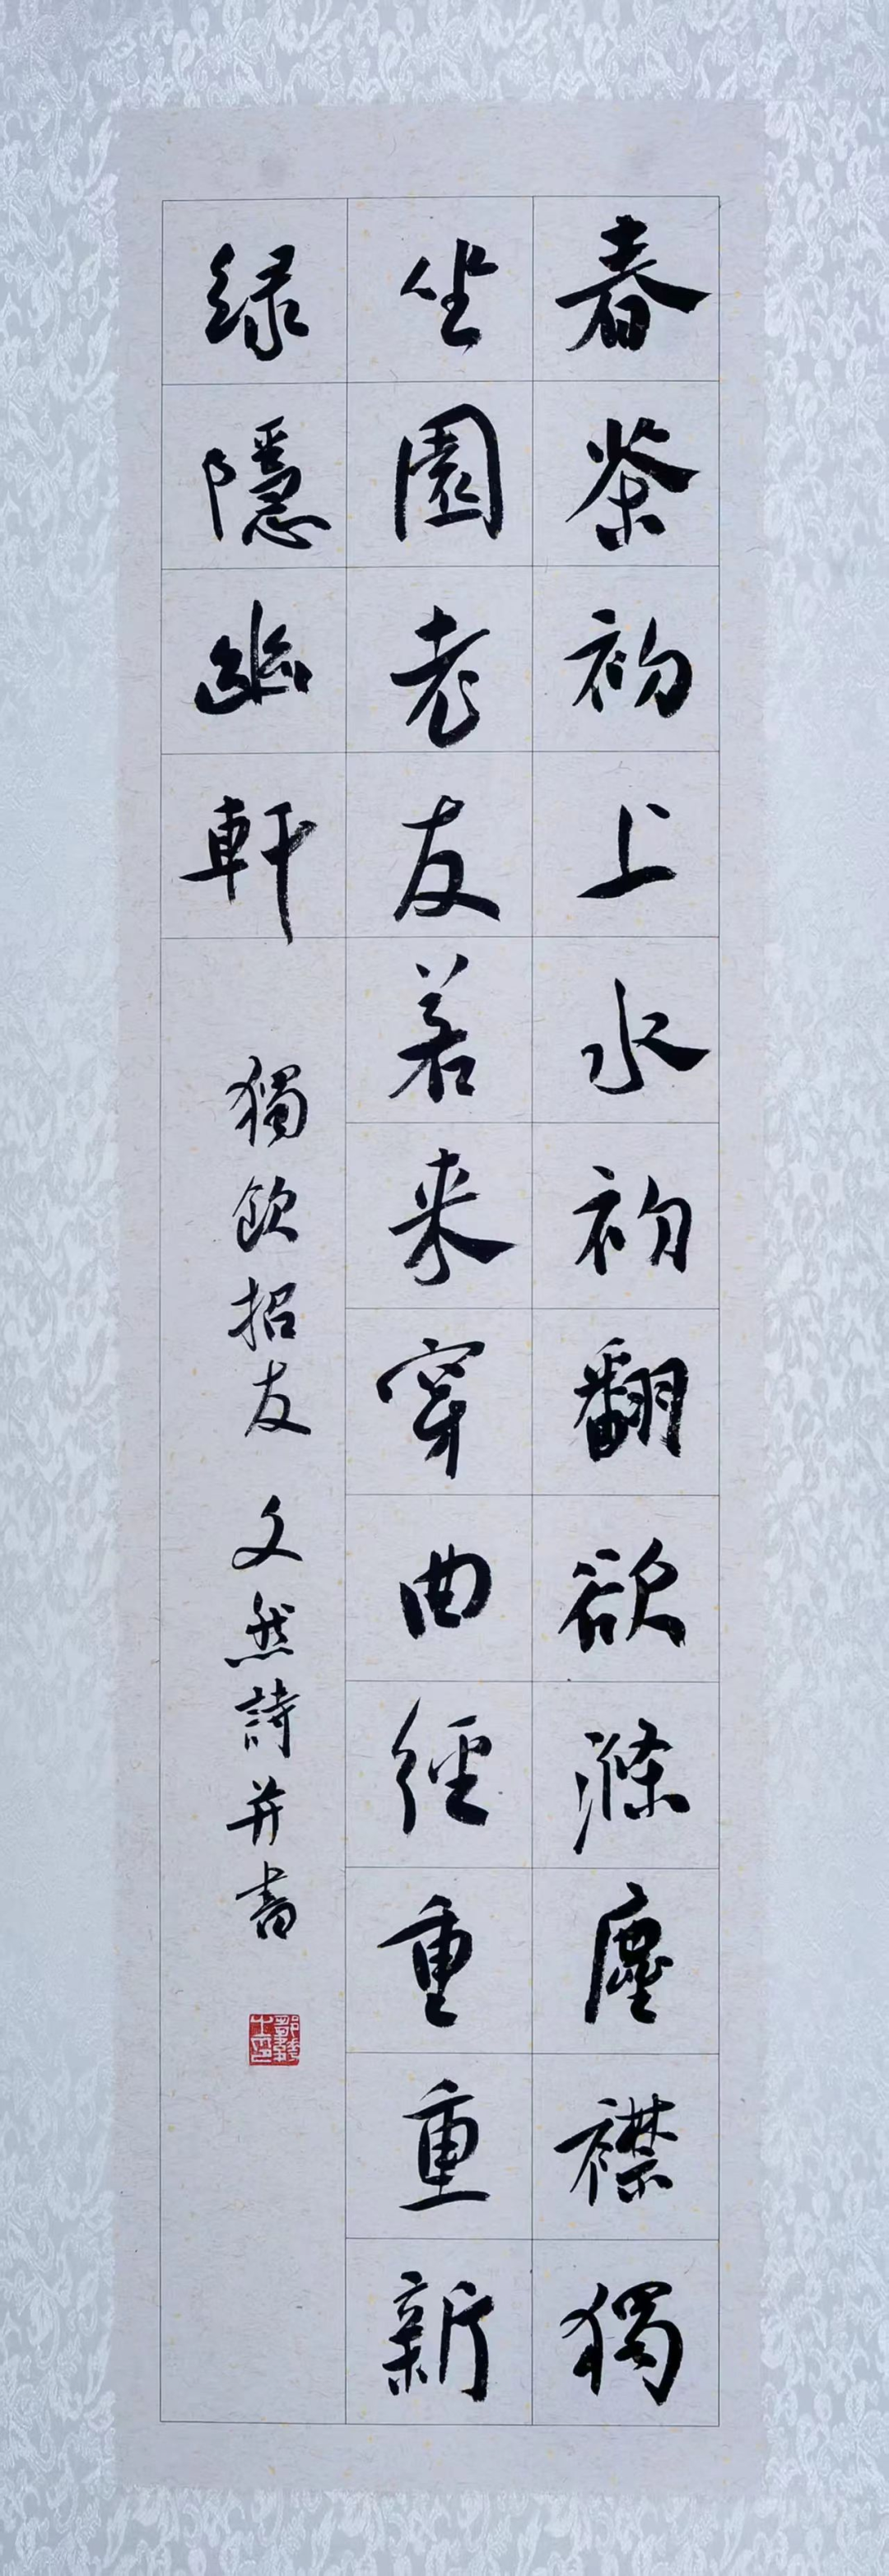 春茶初上水初翻欲滌塵襟獨
坐園老友若来穿曲徑重重新
緑隱幽軒
獨飲招友 文然詩并書